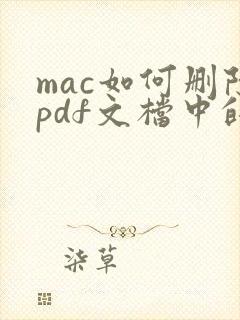 mac如何删
pdf文檔中
柒草